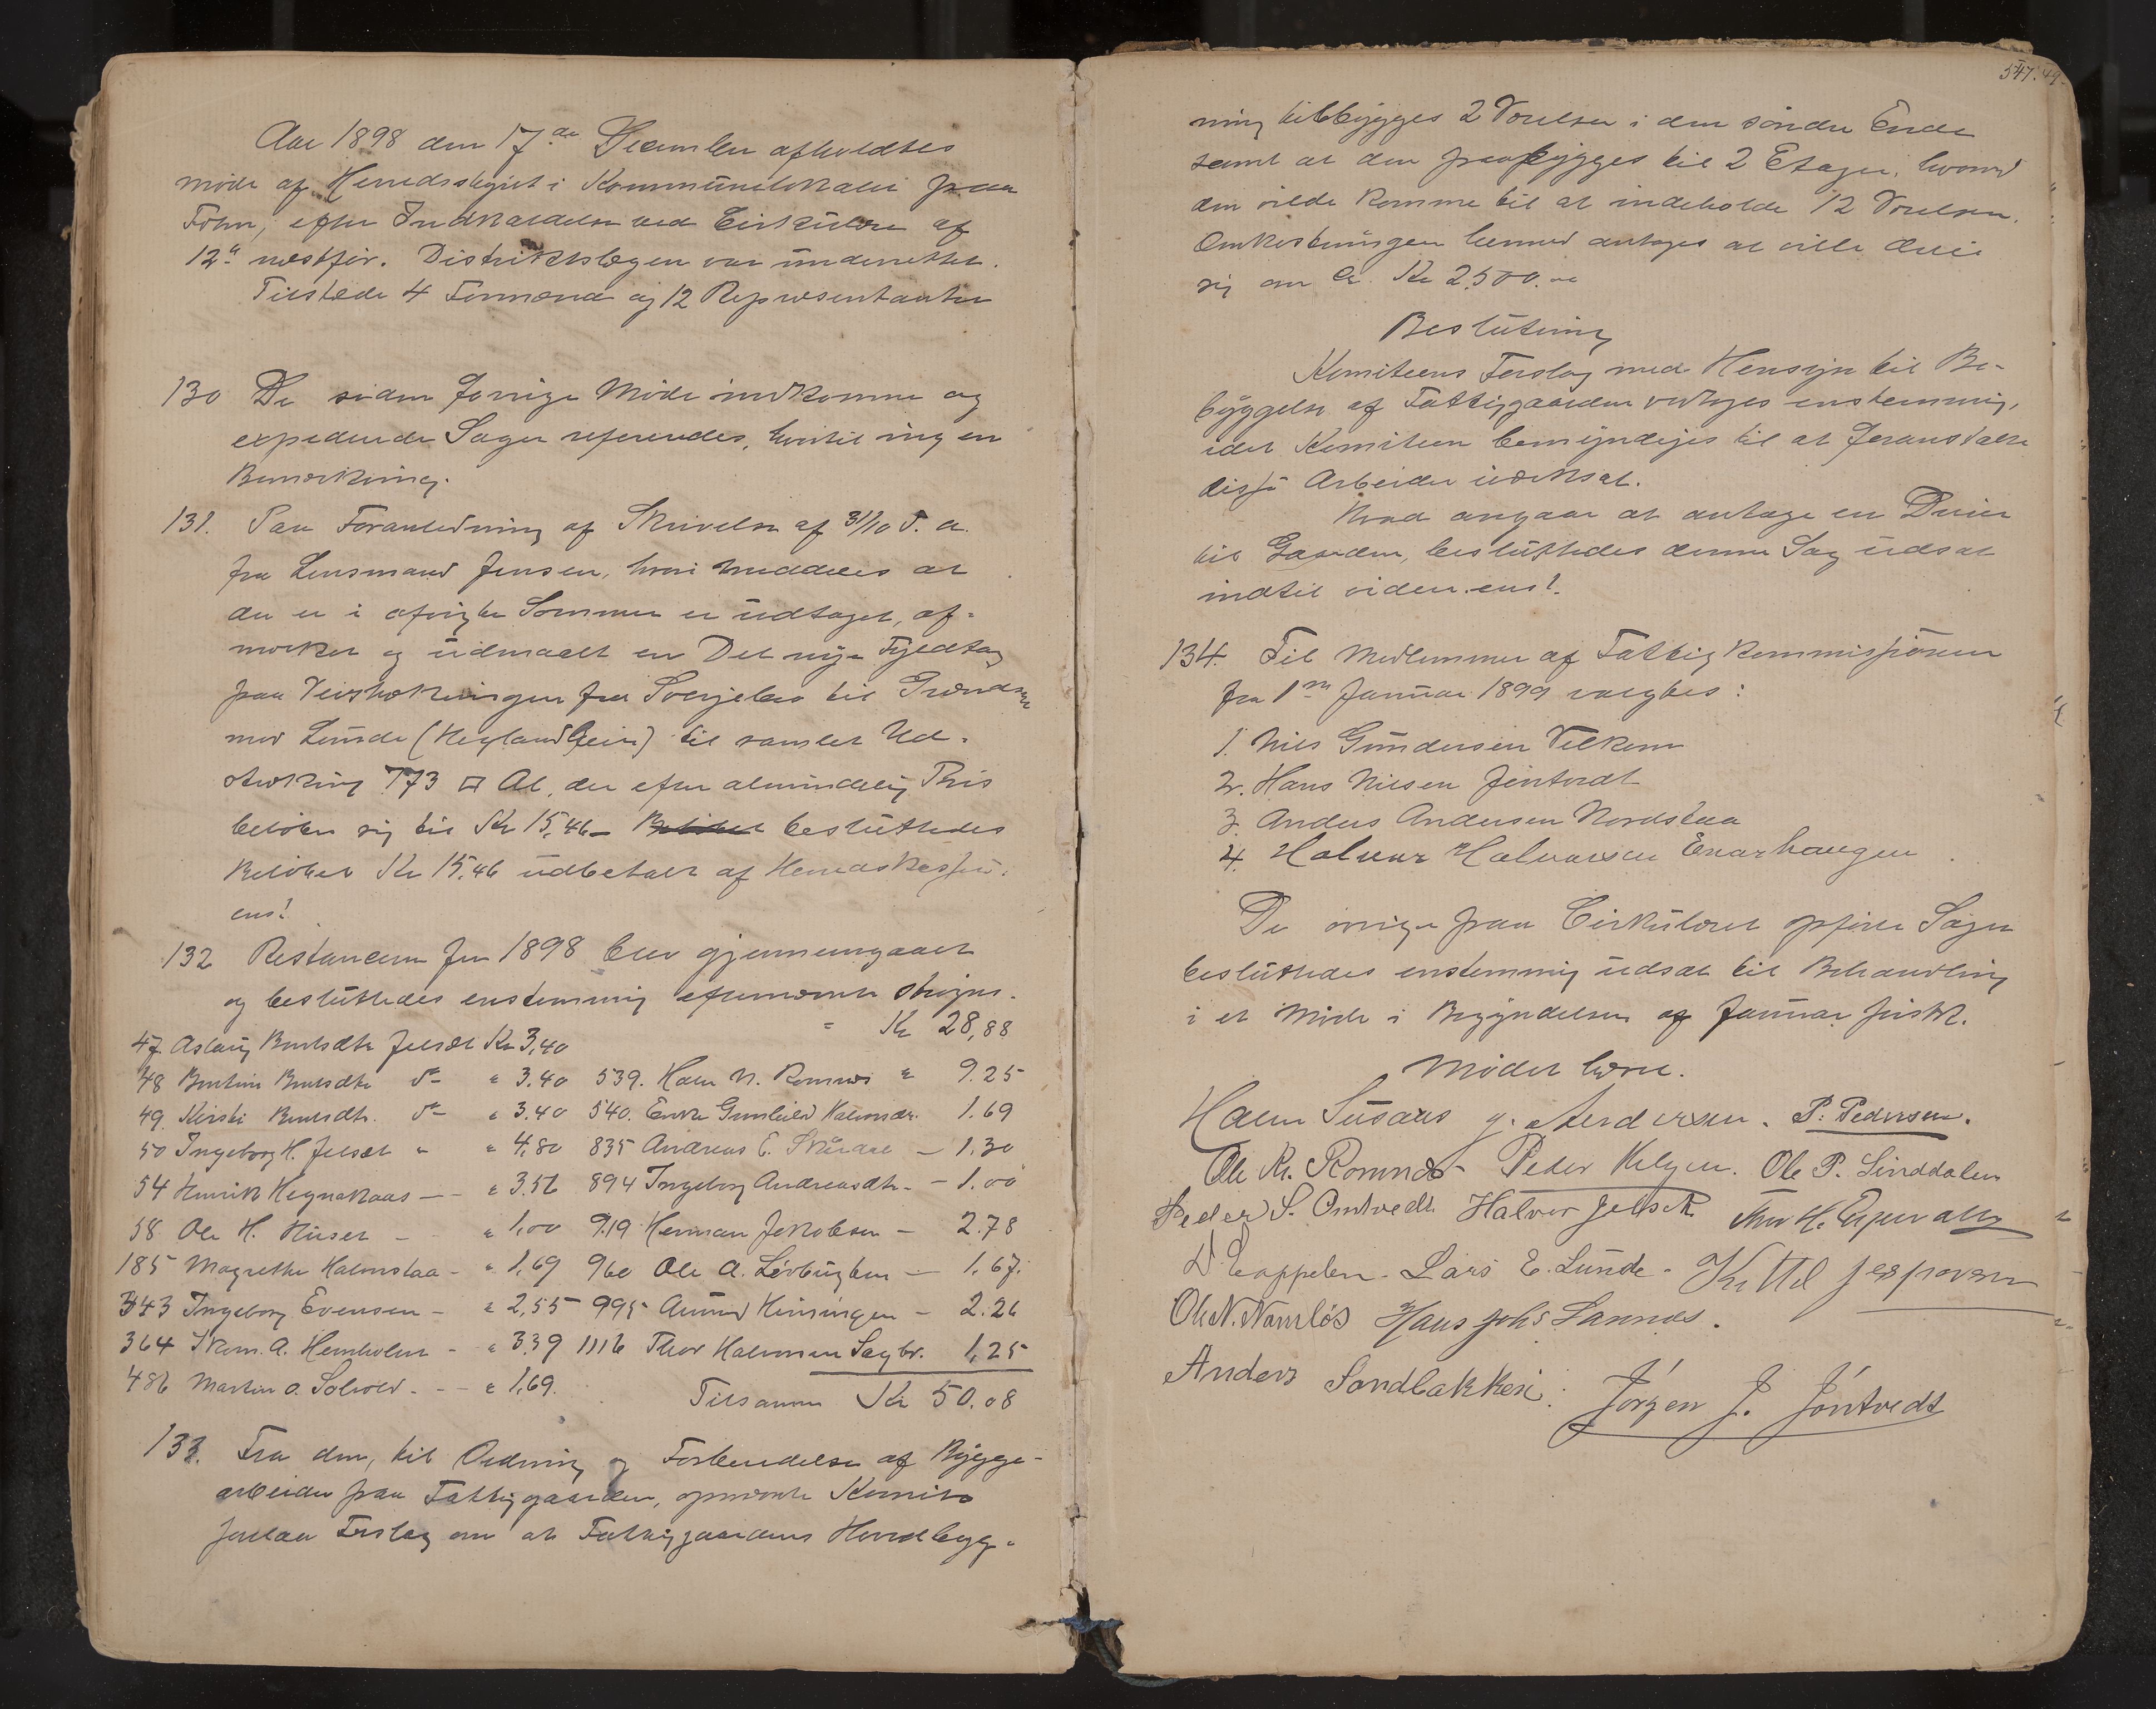 Aar 1898 den 17de December afholdtes
møde af Herredsstyret i Kommunelokalet paa
Folum, efter Indkaldelse ved Cirkulære af
12te næstfør. Distriktslægen var underrettet.
Tilstede 4 Formænd og 12 Repræsentanter
130 De siden forrige Møde indkomne og
expederede Sager refereredes, hvortil ingen
Bemærkning.
131. Paa Foranledning af Skrivelse af 31/10 d. a.
fra Lensmand Jensen, hvori meddeles at
der er i afvigte Sommer er udtaget, af-
mærket og udmaalt en Del nye Fyldtag
paa Veistrækningen fra Sverjebro til Grændsen
mod Lunde (Heglandsveien) til samlet Ud-
strækning 773 □ Al, der efter almindelig Pris
beløber sig til Kr 15,46 – besluttedes
Beløbet Kr 15,46 udbetalt af Herredskasse-
ens!
132 Restancerne for 1898 blev gjennemgaaet
og besluttedes enstemmig efternævnte strøgne.
47 Aslaug Bentsdtr Jelset Kr 3,40 Kr 28,88
48 Bentine Bentsdtr do " 3.40 539. Halv N. Romnes " 9.25
49. Kirsti Bentsdtr. do " 3.40 540. Enke Gunhild Halvorsdr. 1.69
50 Ingeborg H. Jelset " " 4,80 835 Andreas E. – 1.30
54 Henrik Hegnakaas – " 3.56 894 Ingeborg Andreasdtr. – 1.00
58 Ole H. Huset – " 1,00 919 Herman Jakobsen – 2.78
185 Magrethe Halmstaa – " 1,69 960 Ole A. Løvbugten – 1,67.
343 Ingeborg Evensen – " 2,55 995 Amund – 2.26
364 A. Hemholm – " 3.39 1116 Thor Halvorsen Sagbr. 1,25
486 Martin O. Solvold – – " 1,69. Tilsammen Kr 50.08
133. Fra den, til Ordning og Forberedelse af Bygge-
arbeider paa Fattiggaarden, opnævnte Komite
forelaa Forslag om at Fattiggaardens Hovedbygg-
547.
ning tilbygges 2 Værelser i den søndre Ende
samt at den paabygges til 2 Etager, hvorved
den vilde komme til at indeholde 12 Værelser.
Omkostningen herved antoges at ville dreie
sig om Ca. Kr 2500.00
Beslutning
Komiteens Forslag med Hensyn til Be-
byggelse af Fattiggaarden vedtoges enstemmig,
idet Komiteen bemyndiges til at foranstalte
disse Arbeider iværksat.
Hvad angaar at antage en Driver
til Gaarden, besluttedes denne Sag udsat
indtil videre. ens!.
134. Til Medlemmer af Fattigkommissionen
fra 1ste Januar 1899 valgtes:
1. Nils Gundersen Vekum
2. Hans Nilsen Jøntvedt
3. Anders Andersen Nordstaa
4. Halvor Halvorsen Enarhaugen
De øvrige paa Cirkulæret opførte Sager
besluttedes enstemmig udsat til Behandling
i et Møde i Begyndelsen af Januar førstk.
Mødet hævet.
Halvor Susaas g. Andersen. P. Pedersen.
Ole Kr. Romnes Peder Kelgen. Ole P. Linddalen
Peder S. Omtvedt Halvor Jelset
D. Cappelen. Lars E. Lunde. Kittel Jespersen
Ole N. Namløs Hans Johs Sannes.
Anders Sandbakken. Jørgen J. Jøntvedt